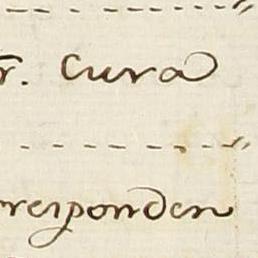 r. Cura
responden